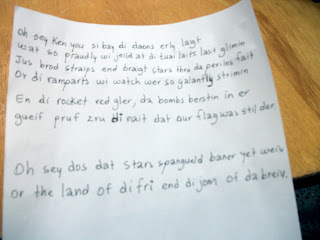 Oh sey Ken you si bay di daons erly lagt
wat so praudly wi jeild at di tuai laits last glimin
Jus brod straips end braigt stars thru da perilos fait
Or di ramparts wi watch wer so galantly strimin
En di rocket red gler, da bombs berstin in er
gueif pruf zru di nait dat our flag was stil der.
Oh sey dos dat stars spangueld baner yet weib
or the land of di fri end di jom of da breiv.